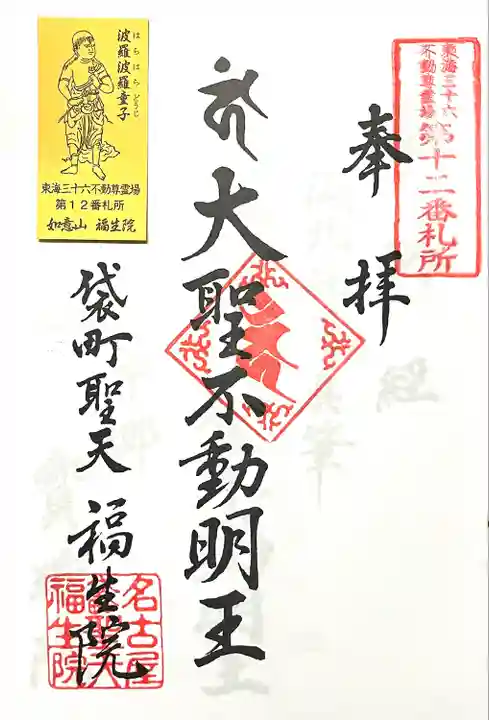 東海三十六
不動尊霊場
第十二番札所
奉拝
大聖不動明王
袋町聖天 福生院
名古屋
福生院
波羅波羅童子
はらはらどうじ
東海三十六不動尊霊場
第12番札所
如意山 福生院